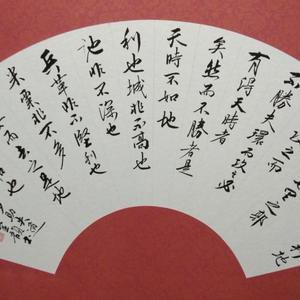 地利
里之郭
攻之而
不勝夫環而攻之必
有得天時者
矣然而不勝者是
天時不如地
利也城非不高也
池非不深也
兵革非不堅利也
米粟非不多
而去之是地
和也